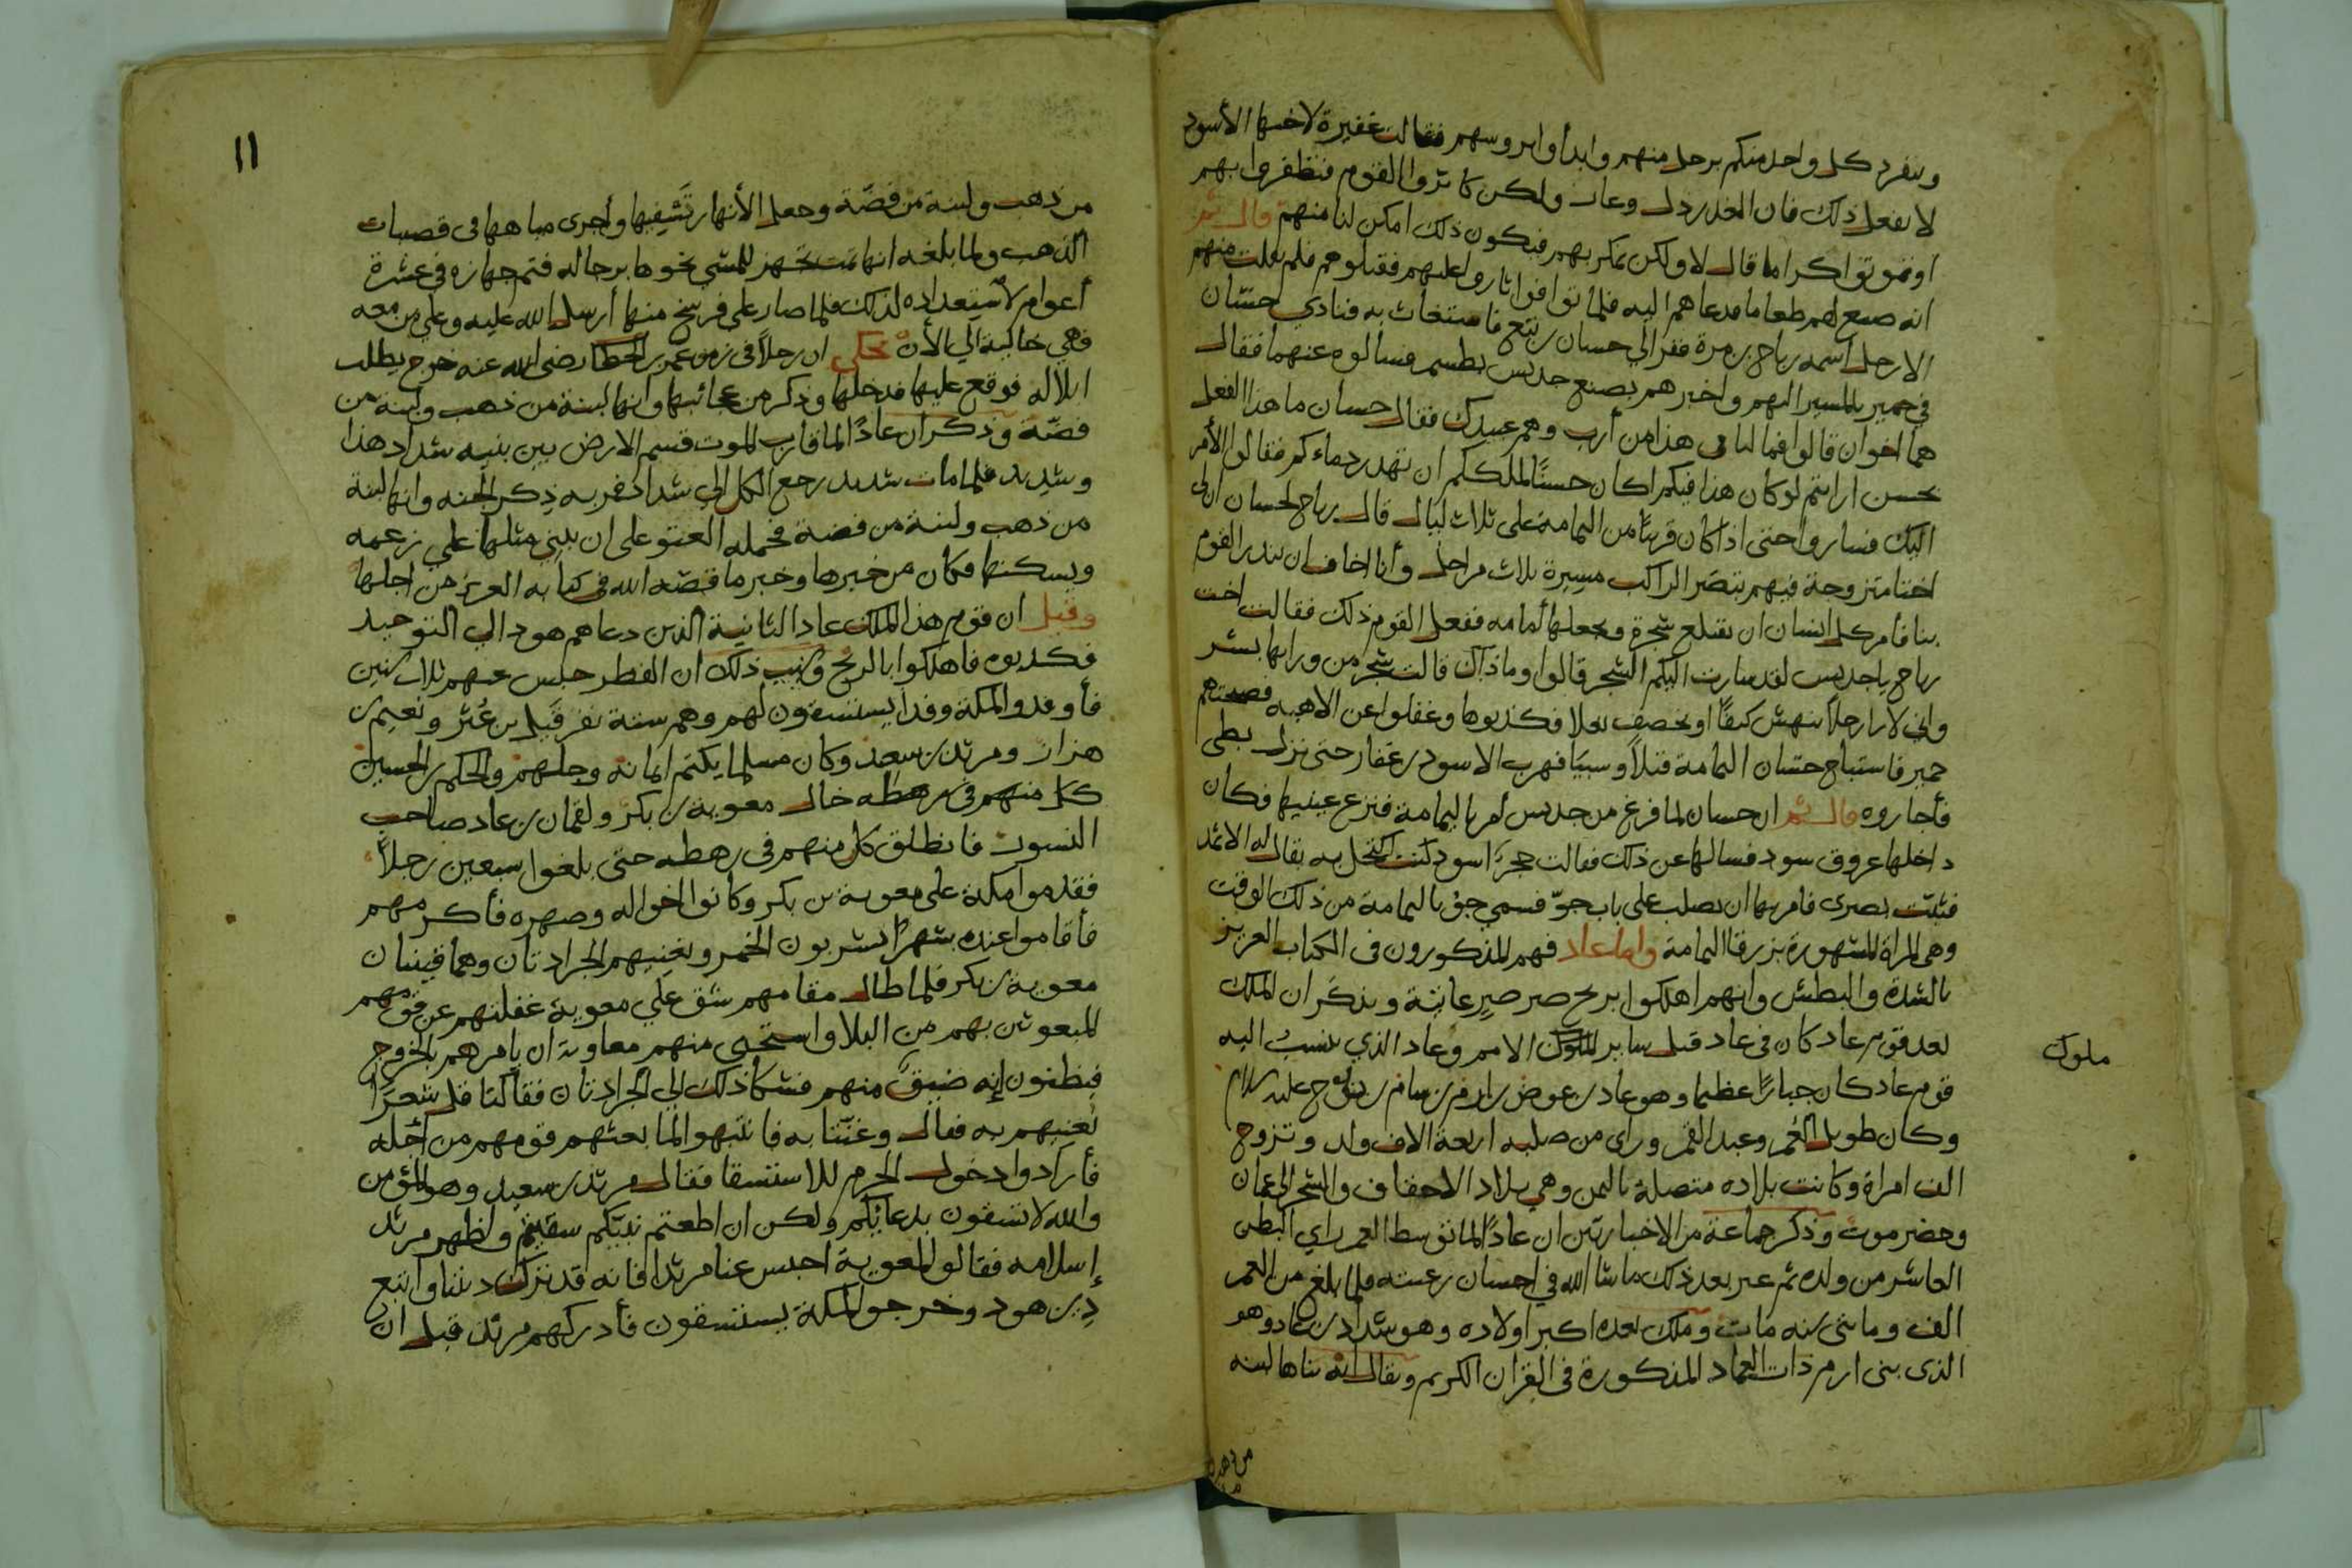 وينفرد كل واحد منكم برجل منهم وابدأوا بروسهم فقالت غفيرة لاخيها الأسود
لا نفعل ذلك فان الغدر ذل وعار ولكن كاثروا القوم فتظفروا بهم
او تموتوا كراما قال لا ولكن نمكر بهم فيكون ذلك امكن لنا منهم قال ثم
انه صنع لهم طعاما فدعاهم اليه فلما توافوا ثاروا عليهم فقتلوهم فلم يفلت منهم
الا رجل اسمه رباح بن مرة ففر الى حسان بن تبع فاستغاث به فنادي حسّان
في حمير بالمسير اليهم واخبرهم بصنع جديس بطسم فسالوه عنهما فقال
هما اخوان قالوا فما لنا في هذا من أرب وهم عبيدك فقال حسان ما هذا الفعل
بحسن ارايتم لو كان هذا فيكم اكان حسنًا لملككم ان تهدر دماءكم فقالوا الأمر
اليك فساروا حتى اذا كان قريبًا من اليمامة على ثلاث ليال قال رباح لحسان ان لى
اختا متزوجة فيهم تبصر الراكب مسيرة ثلاث مراحل وأنا اخاف ان تنذر القوم
بنا فامر كل انسان ان يقتلع شجرة ويجعلها أمامه ففعل القوم ذلك فقالت اخت
رباح يا جديس لقد سارت اليكم الشجر قالوا وما ذاك قالت شجر من ورائها بشر
واني لارا رجلا ينهش كتفًا او يخصف نعلا فكذبوها وغفلوا عن الاهبة فصبحتهم
حمير فاستباح حسّان اليمامة قتلاً وسبيًا فهرب الاسود بن غفار حتى نزل بطى
فأجاروه قال ثم ان حسان لما فرغ من جديس أمر باليمامة فنزع عينيها فكان
داخلها عروق سود فسالها عن ذلك فقالت حجرًا اسود كنت اكتحل به يقال له الاثمد
فثبت بصرى فامر بها ان تصلب على باب جوّ فسمي جوّ باليمامة من ذلك الوقت
وهى المراة المشهورة بزرقا اليمامة واما عاد فهم المذكورون فى الكتاب العزيز
بالشدة والبطش وانهم اهلكوا بريح صرصر عاتية ويذكر ان الملك
بعد قوم عاد كان فى عاد قبل ساير الملوك الامم وعاد الذي ينسب اليه
ملوك
قوم عاد كان جبارًا عظيما وهو عاد بن عوض بن ارم بن سام بن نوح عليه السلام
وكان طويل العُمر وعبد القمر وراى من صلبه اربعة الاف ولد وتزوج
الف امراة وكانت بلاده متصلة باليمن وهي بلاد الاحقاف والشحر الى عمان
وحضرموت وذكر جماعة من الاخباريّين ان عادًا لما توسط العمر راي البطن
العاشر من ولده ثم عبر بعد ذلك ما شا الله في احسان رعيته فلما بلغ من العمر
الف ومائتى سنه مات وملك بعده اكبر اولاده وهو شداد بن عاد وهو
الذى بنى ارم ذات العماد المذكورة فى القران الكريم ويقال انه بناها لبنه
من ذهب
١١
من ذهب ولبنة من فضّة وجعل الأنهار تَسْقِيها وأجرى مياهها فى قصبات
الذهب ولما بلغه انها تمت تجهز للمشي نحوها برجاله فتم جهازه في عشرة
أعوام لاستعداده لذلك فلما صار على فرسخ منها أرسل الله عليه وعلى من معه
فهي خالية الي الأن يحكى ان رجلاً في زمن عمر بن الخطاب رضي الله عنه خرج يطلب
ابلا له فوقع عليها فدخلها وذكر من عجائبها وانها لبنة من ذهب ولبنة من
فضّة وذكر ان عادًا لما قارب الموت قسم الارض بين بنيه شداد هذا
وشديد فلما مات شديد رجع الكل الي شداد فمر به ذكر الجنه وانها لبنة
من ذهب ولبنة من فضة فحمله العتو على ان يبني مثلها علي زعمه
ويسكنها فكان من خبرها وخبره ما قصّه الله في كتابه العزيز من اجلها
وقيل ان قوم هذا الملك عاد الثانية الذين دعاهم هود الي التوحيد
فكذبوه فاهلكوا بالريح وسبب ذلك ان القطر حبس عنهم ثلاث سنين
فأوفدوا لمكة وفدا يستسقون لهم وهم ستة نفر قيل بن عنز ونعيم بن
هزال ومرثد بن سعد وكان مسلما يكتم ايمانه وجلهم والحكم بن الحسين
كل منهم فى رهطه خال معوية بن بكر ولقمان بن عاد صاحب
النسور فانطلق كل منهم فى رهطه حتى بلغوا سبعين رجلاً
فقدموا مكة على معوية بن بكر وكانوا اخواله وصهره فأكرمهم
فأقاموا عنده شهرًا يشربون الخمر وتغنيهم الجرادتان وهما قينتان
معوية بن بكر فلما طال مقامهم شق علي معوية غفلتهم عن قومهم
المبعوثين بهم من البلا واستحى منهم معاوية ان يامرهم بالخروج
فيظنون انه ضيق منهم فشكا ذلك الي الجرادتان فقالتا قل شعرًا
نُغنيهم به فقال وغنّتا به فانتبهوا لما بعثهم قومهم من أجله
فأرادوا دخول الحرم للاستسقا فقال مرثد بن سعيد وهو المؤمن
والله لا تسقون بدعائكم ولكن ان اطعتم نبيّكم سقيتم واظهر مرثد
إسلامه فقالوا لمعوية احبس عنا مرثدا فانه قد نزل ديننا واتبع
دين هود وخرجوا لمكة يستسقون فأدركهم مرثد قبل ان